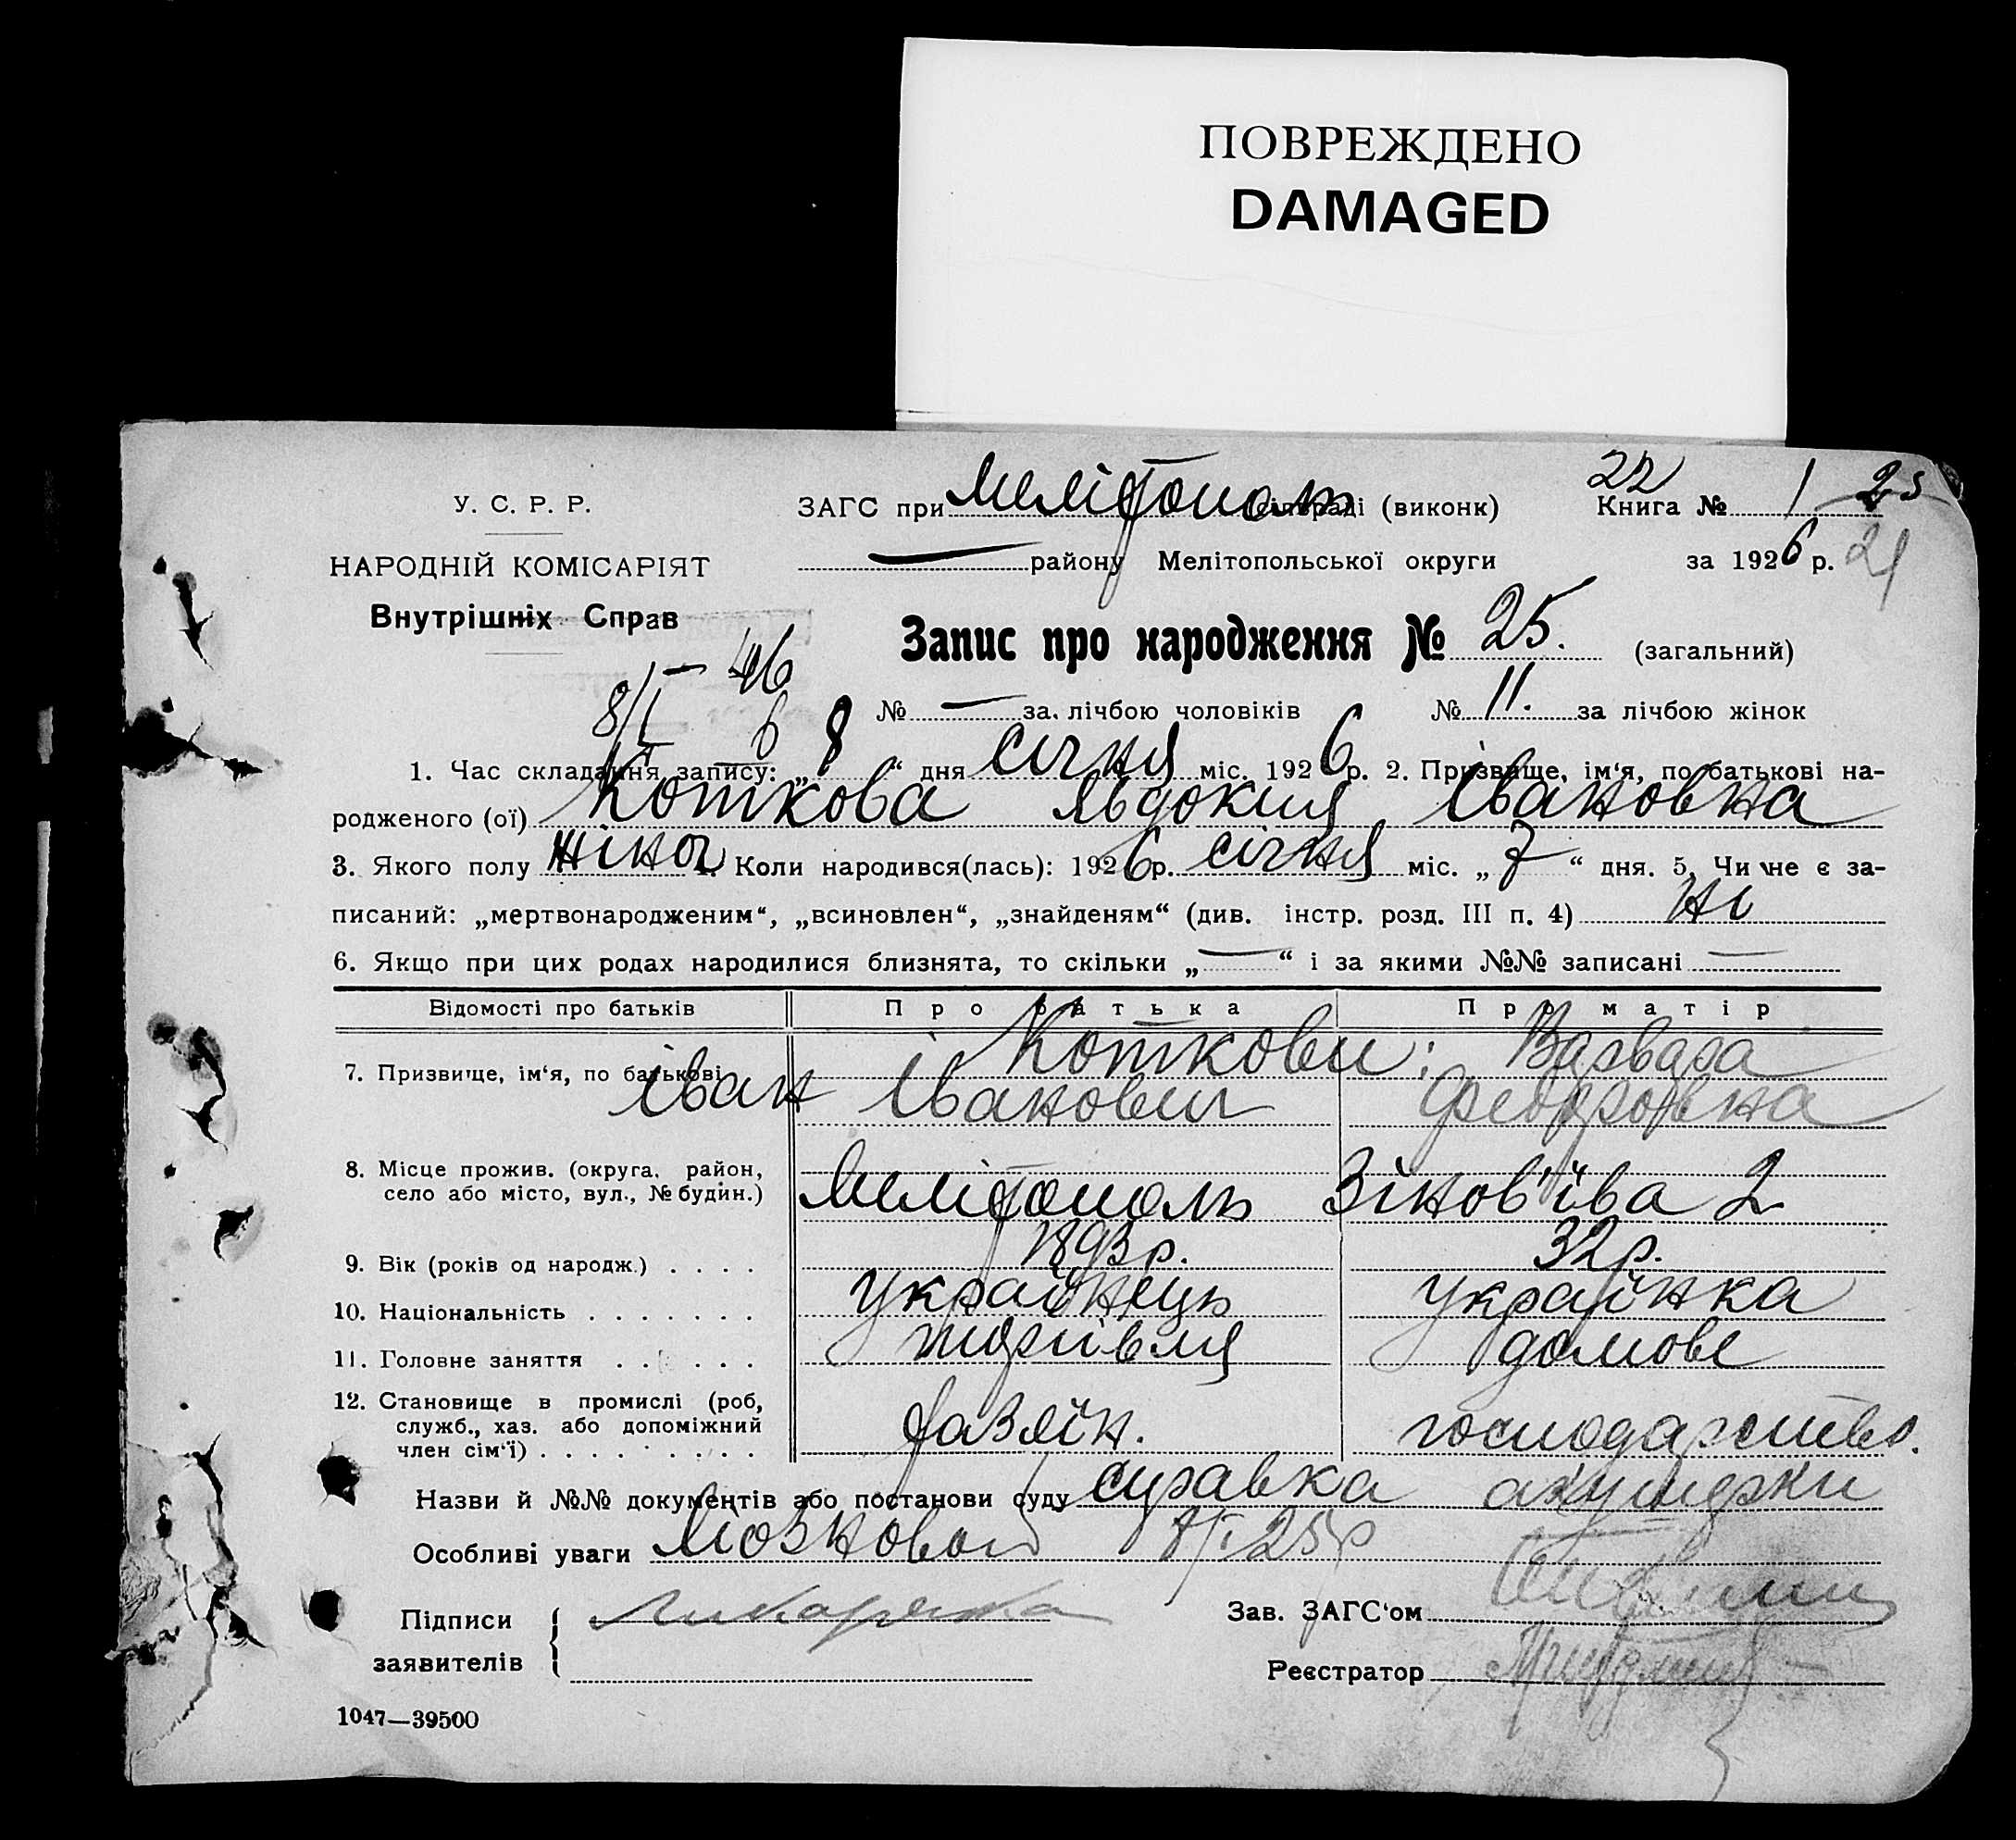 ПОВРЕЖДЕНО
DAMAGED
У. С. Р. Р.
ЗАГС при Мелітополь сільраді (виконк)
22
Книга № 1 25
НАРОДНІЙ КОМІСАРІЯТ
— району Мелітопольської округи
за 1926 р. 21
Внутрішніх Справ
Запис про народження № 25. (загальний)
8/І — 46
6
№ — за лічбою чоловіків № 11. за лічбою жінок
1. Час складання запису: „8“ дня січня міс. 1926 р. 2. Призвище, ім‘я, по батькові на-
родженого (ої) Коткова Явдокия Івановна
3. Якого полу жіноч 4. Коли народився(лась): 1926 р. січня міс. „7“ дня. 5. Чи не є за-
писаний: „мертвонародженим“, „всиновлен“, „знайденям“ (див. інстр. розд. III п. 4) ні
6. Якщо при цих родах народилися близнята, то скільки „—“ і за якими №№ записані —
Відомості про батьків Про батька Про матір
7. Призвище, ім‘я, по батькові Коткови: Варвара
Іван Іванович Федоровна
8. Місце прожив. (округа, район,
село або місто, вул., № будин.) Мелітополь Зінов'їва 2
9. Вік (років од народж.) . . . . 1893 р. 32 р.
10. Національність . . . . . . . українець українка
11. Головне заняття . . . . . . торгівля домове
12. Становище в промислі (роб,
служб., хаз. або допоміжний
член сім‘ї) . . . . . . . . . господарство.
Назви й №№ документів або постанови суду справка акушерки
Особливі уваги Лозновой 8/І 25 р
Підписи
заявителів
Зав. ЗАГС‘ом
Реєстратор
1047—39500